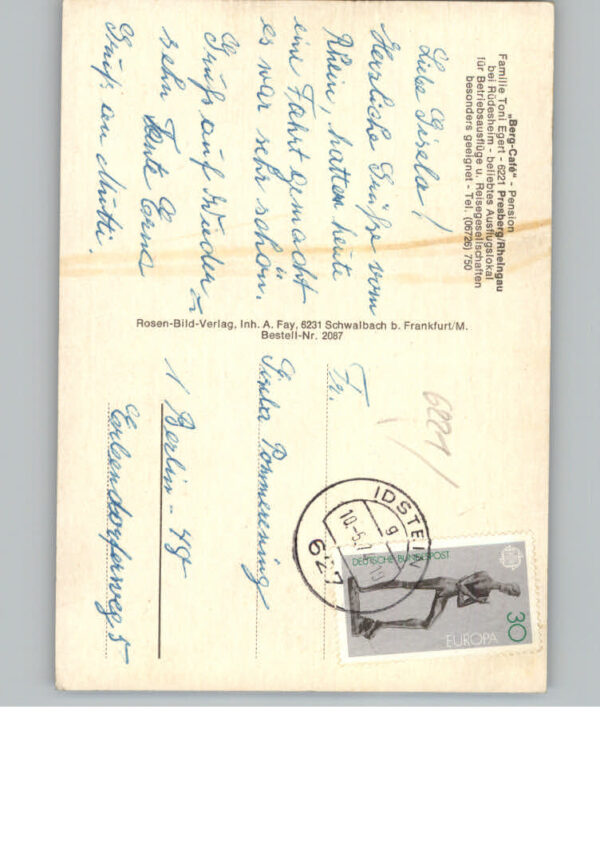 „Berg-Café“ - Pension
Familie Toni Egert - 6221 Presberg/Rheingau
bei Rüdesheim - beliebtes Ausflugslokal
für Betriebsausflüge u. Reisegesellschaften
besonders geeignet - Tel. (06726) 750
Liebe Gisela!
Herzliche Grüße vom
Rhein, hatten heute
eine Fahrt gemacht
es war sehr schön.
Gruß auf Wieder-
sehn Tante Erna
Gruß an Mutti.
Rosen-Bild-Verlag, Inh. A. Fay, 6231 Schwalbach b. Frankfurt/M.
Bestell-Nr. 2087
6221
Fr.
Pommerening
1 Berlin-
5
IDSTEIN
627
10.-5.
19
DEUTSCHE BUNDESPOST
EUROPA
30